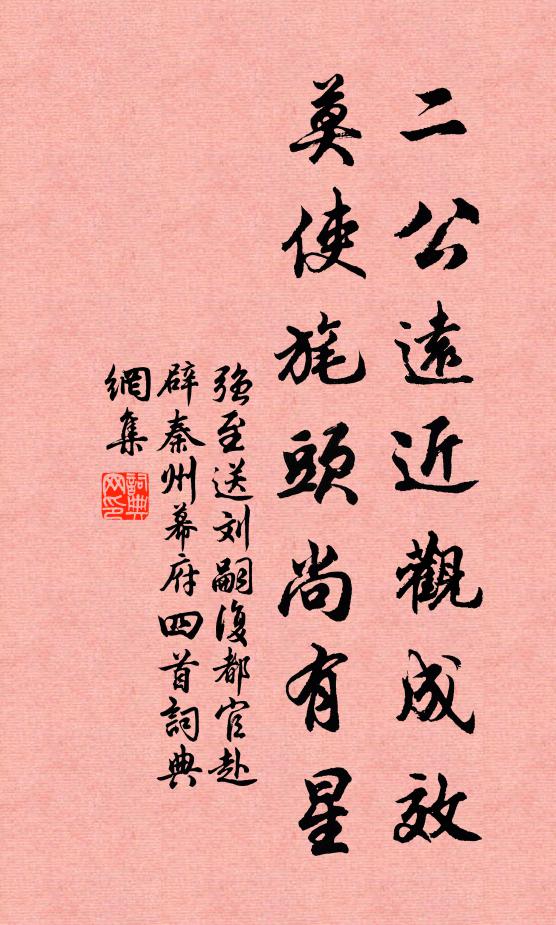 二公遠近觀成效
莫使旄頭尚有星
強至送刘嗣復都官赴
辟秦州幕府四首詞典
網集
詞典
网印